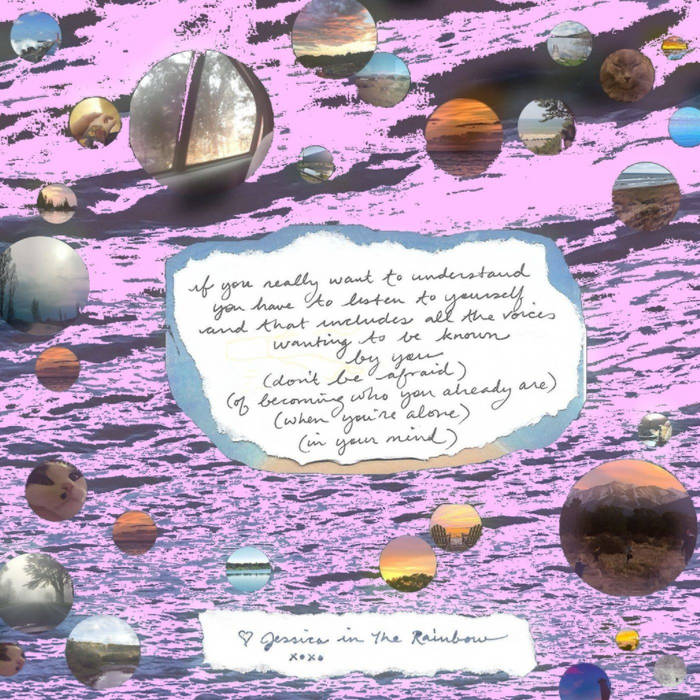 if you really want to understand
you have to listen to yourself
and that includes all the voices
wanting to be known
by you
(don't be afraid)
(of becoming who you already are)
(when you're alone)
(in your mind)
♡ Jessica in The Rainbow
xoxo